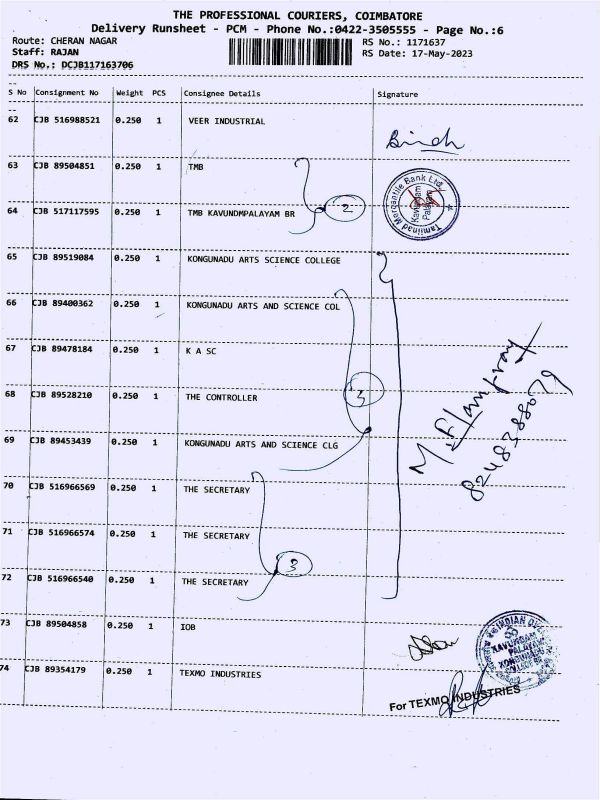 THE PROFESSIONAL COURIERS, COIMBATORE
Delivery Runsheet - PCM - Phone No.:0422-3505555 - Page No.:6
Route: CHERAN NAGAR RS No.: 1171637
Staff: RAJAN RS Date: 17-May-2023
DRS No.: DCJB117163706
S No Consignment No Weight PCS Consignee Details Signature
62 CJB 516988521 0.250 1 VEER INDUSTRIAL
63 CJB 89504851 0.250 1 TMB
Tamilnad Mercantile Bank Ltd.
Kavundam Palayam
64 CJB 517117595 0.250 1 TMB KAVUNDMPALAYAM BR 2
65 CJB 89519084 0.250 1 KONGUNADU ARTS SCIENCE COLLEGE
66 CJB 89400362 0.250 1 KONGUNADU ARTS AND SCIENCE COL
67 CJB 89478184 0.250 1 K A SC
68 CJB 89528210 0.250 1 THE CONTROLLER 3
8248388079
69 CJB 89453439 0.250 1 KONGUNADU ARTS AND SCIENCE CLG
70 CJB 516966569 0.250 1 THE SECRETARY
71 CJB 516966574 0.250 1 THE SECRETARY
3
72 CJB 516966540 0.250 1 THE SECRETARY
73 CJB 89504858 0.250 1 IOB
INDIAN
KAVUNDAM
PALAYAM
74 CJB 89354179 0.250 1 TEXMO INDUSTRIES
For TEXMO INDUSTRIES